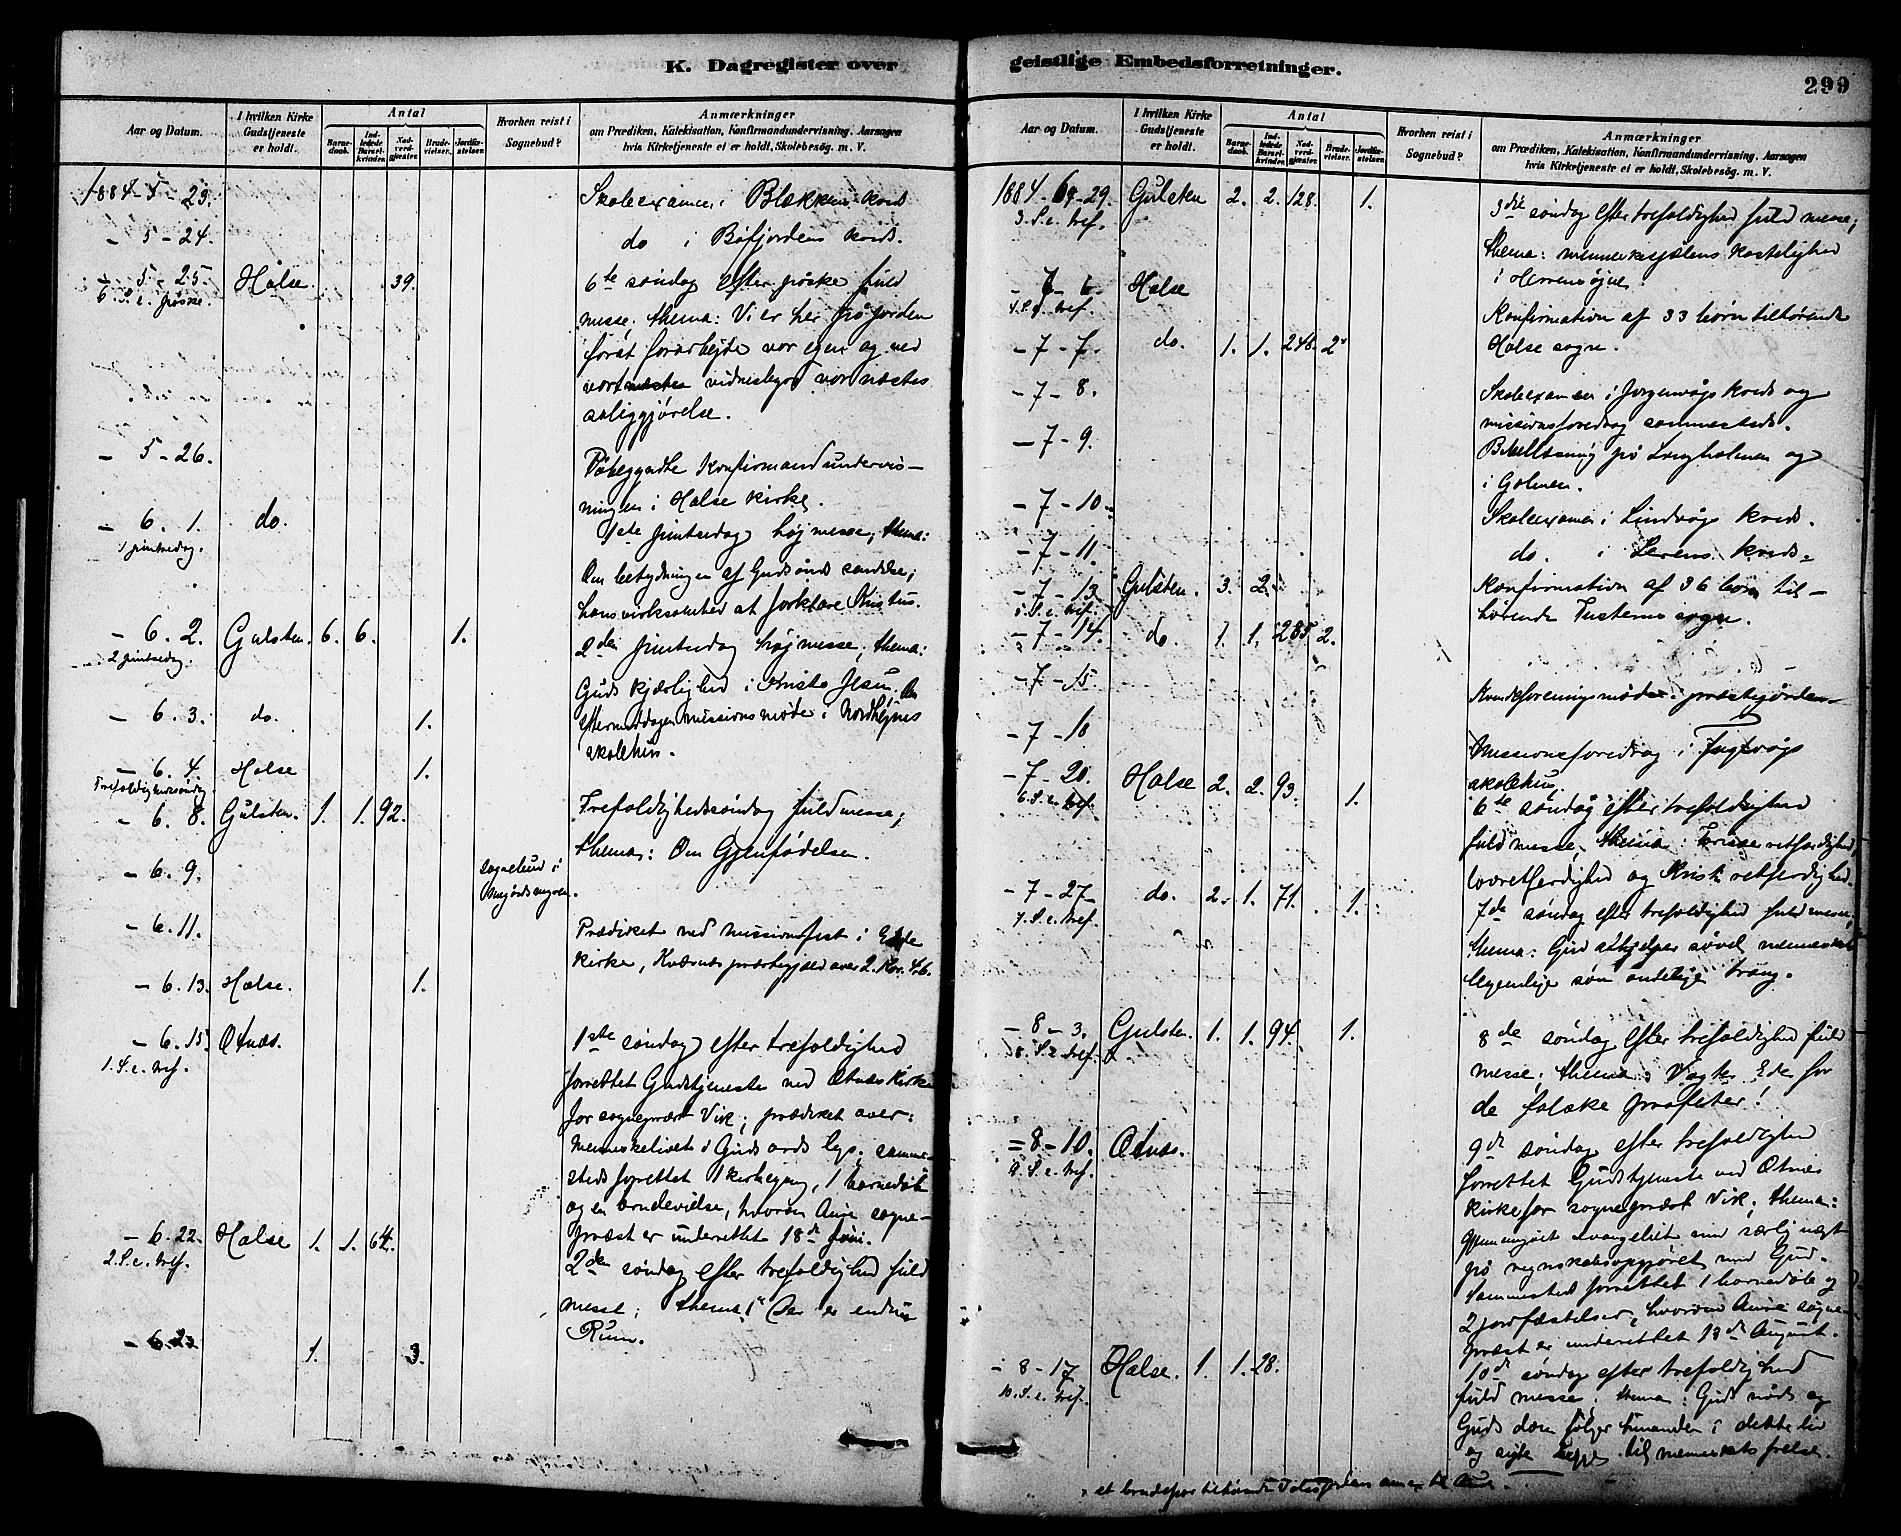 K. Dagregister over
Aar og Datum.
I hvilken Kirke Gudstjeneste er holdt.
Antal
Barne-daab.
Ind-ledede Barsel-kvinder.
Nad-verd-gjester.
Brude-vielser.
Jordfæ-stelser.
Hvorhen reist i Sognebud?
Anmærkninger
om Prædiken, Katekisation, Konfirmandundervisning, Aarsagen
hvis Kirketjeneste ei er holdt, Skolebesög. m. V.
1884-5-23. Skoleexamen i Blekken kreds
- 5-24. do i Bøfjordens kreds.
- 5-25. Halse. 39. 6te søndag efter påske fuld
6 S. e. påske. messe; thema: Vi er her på jorden
først forarbejde vor egen og ved
vort vidnesbyrd vor næstes
saliggjørelse.
- 5-26. Påbegyndte konfirmandundervis-
ningen i Halse kirke.
- 6. 1. do. 1ste pintsedag højmesse; thema:
1 pintsedag. Om betydningen af Guds ånds sendelse;
hans virksomhed at forklare Kristus.
- 6. 2. Gulsten. 6. 6. 1. 2den pintsedag højmesse; thema:
2 pintsedag. Guds kjærlighed i Kristo Jesu. Om
- 6. 3. do. 1. eftermiddagen missionsmøde i Nordhejms
skolehus.
- 6. 4. Halse 1.
Trefoldighedssøndag
- 6. 8. Gulsten. 1. 1. 92. Trefoldighedssøndag fuld messe;
thema: Om Gjenfødelsen.
- 6. 9. sognebud i
- 6. 11. Prædiket ved missionsfest i
kirke, Kvernes præstegjeld over 2. Kor. 4.6.
- 6. 13. Halse. 1.
- 6. 15. Otnæs. 1ste søndag efter trefoldighed
1. S. e. tref. forrettet Gudstjeneste ved Otnæs kirke
for sogneprest Vik; prædiket over:
Menneskelivet i Guds ords lys; samme-
steds forrettet 1 kirkegang, 1 barnedåb
og en brudevielse, hvorom Aure sogne-
præst er underrettet 18de juni.
- 6. 22. Halse 1. 1. 64. 2den søndag efter trefoldighed fuld
2. S. e. tref. messe; thema: Der er endnu
Rum.
- 6-23 1. 3.
geistlige Embedsforretninger.
299
Aar og Datum.
I hvilken Kirke Gudstjeneste er holdt.
Antal
Barne-daab.
Ind-ledede Barsel-kvinder.
Nad-verd-gjester.
Brude-vielser.
Jordfæ-stelser.
Hvorhen reist i Sognebud?
Anmærkninger
om Prædiken, Katekisation, Konfirmandundervisning, Aarsagen
hvis Kirketjeneste ei er holdt, Skolebesög. m. V.
1884-6-29. Gulsten 2. 2. 128. 1. 3die søndag efter trefoldighed fuld messe;
3. S. e. tref. thema: menneskesjælens kostelighed
i Herrens øjne.
- 7-6. Halse Konfirmation af 33 børn tilhørende
4. S. e. tref. Halse sogn.
- 7-7. do. 1. 1. 246. 2
- 7-8. Skoleexamen i Jørgenvågs kreds og
missionsforedrag sammesteds.
- 7-9. Bibellæsning på Langholmen og
i Golmen.
- 7-10. Skoleexamen i Lindvågs kreds.
- 7-11. do. i Lerens kreds.
- 7-13. Gulsten. 3. 2. Konfirmation af 36 børn til-
5. S. e. tref. hørende Tusterne sogn.
- 7-14. do 1. 1. 285 2.
- 7-15. Kvindeforeningsmøde præstegården
- 7-18 Missionsforedrag i
skolehus.
- 7-20. Halse 2. 2. 93. 1. 6te søndag efter trefoldighed
6. S. e. tref. fuld messe; thema: retfærdighed,
lovretfærdighed og Kristi retfærdighed.
- 7-27- do. 2. 1. 71. 1. 7de søndag efter trefoldighed fuld messe;
7. S. e. tref. thema: Gud afhjelper såvel menneskets
legemlige som åndelige trang.
- 8-3. Gulsten. 1. 1. 94. 1. 8de søndag efter trefoldighed fuld
8. S. e. tref. messe; thema: Vogte Eder for
de falske profeter!
- 8-10. Otnæs. 9de søndag efter trefoldighed
9. S. e. tref. forrettet Gudstjeneste ved Otnæs
kirke for sogneprest Vik; thema:
Gjennemgået Evangeliet med særlig vægt
på regnskabsopgjøret med Gud.
Sammesteds forrettet 1 barnedåb og
2 jordfæstelser, hvorom Aure sogne-
præst er underrettet 13de August.
- 8-17 Halse. 1 1. 28. 10de søndag efter trefoldighed
10. S. e. tref. fuld messe; thema: Guds nåde og
Guds dom følger hinanden i dette liv
og sigte begge til menneskets frelse.